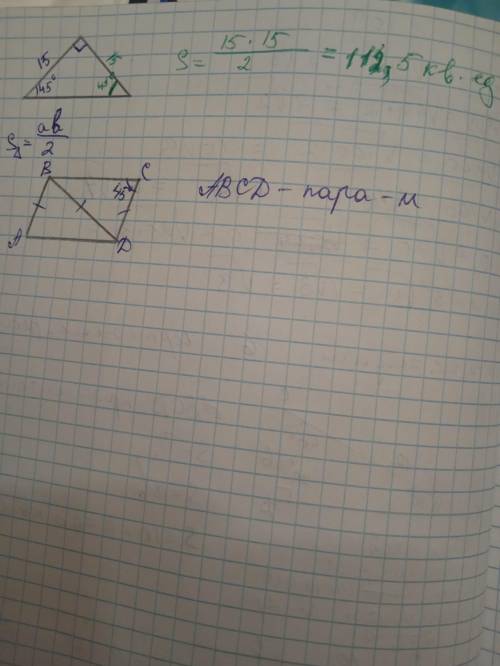 15 15
45° 45°
S = 15 · 15 / 2 = 112,5 кв. ед
S△ = ab / 2
B C
45°
A D
ABCD - пара - м